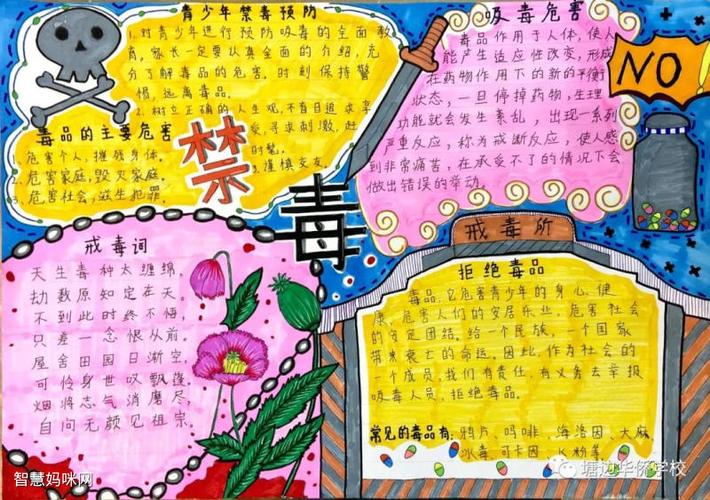 青少年禁毒预防
1.对青少年进行预防吸毒的全面教
育,家长一定要认真全面的介绍,充
分了解毒品的危害,时刻保持警
惕,远离毒品。
2.树立正确的人生观,不盲目追求享
受,寻求刺激,赶
时髦。
3.谨慎交友。
毒品的主要危害
1.危害个人,摧残身体。
2.危害家庭,毁灭家庭。
3.危害社会,滋生犯罪。
禁
毒
吸毒危害
毒品作用于人体,使人
能产生适应性改变,形成
在药物作用下的新的平衡
状态,一旦停掉药物,生理
功能就会发生紊乱,出现一系列
严重反应,称为戒断反应,使人感
到非常痛苦,在承受不了的情况下会
做出错误的举动。
NO
戒毒词
天生毒种太缠绵,
劫数原知定在天。
不到此时终不悟,
只差一念恨从前。
屋舍田园日渐空,
可怜身世叹飘蓬。
烟将志气消磨尽,
自问无颜见祖宗。
戒毒所
拒绝毒品
毒品,它危害青少年的身心、健
康,危害人们的安居乐业,危害社会
的安定团结。给一个民族,一个国家
带来衰亡的命运。因此,作为社会的
一个成员,我们有责任,有义务去举报
吸毒人员,拒绝毒品。
常见的毒品有:鸦片、吗啡、海洛因、大麻
冰毒、可卡因、K粉等
智慧妈咪网
塘边华侨学校